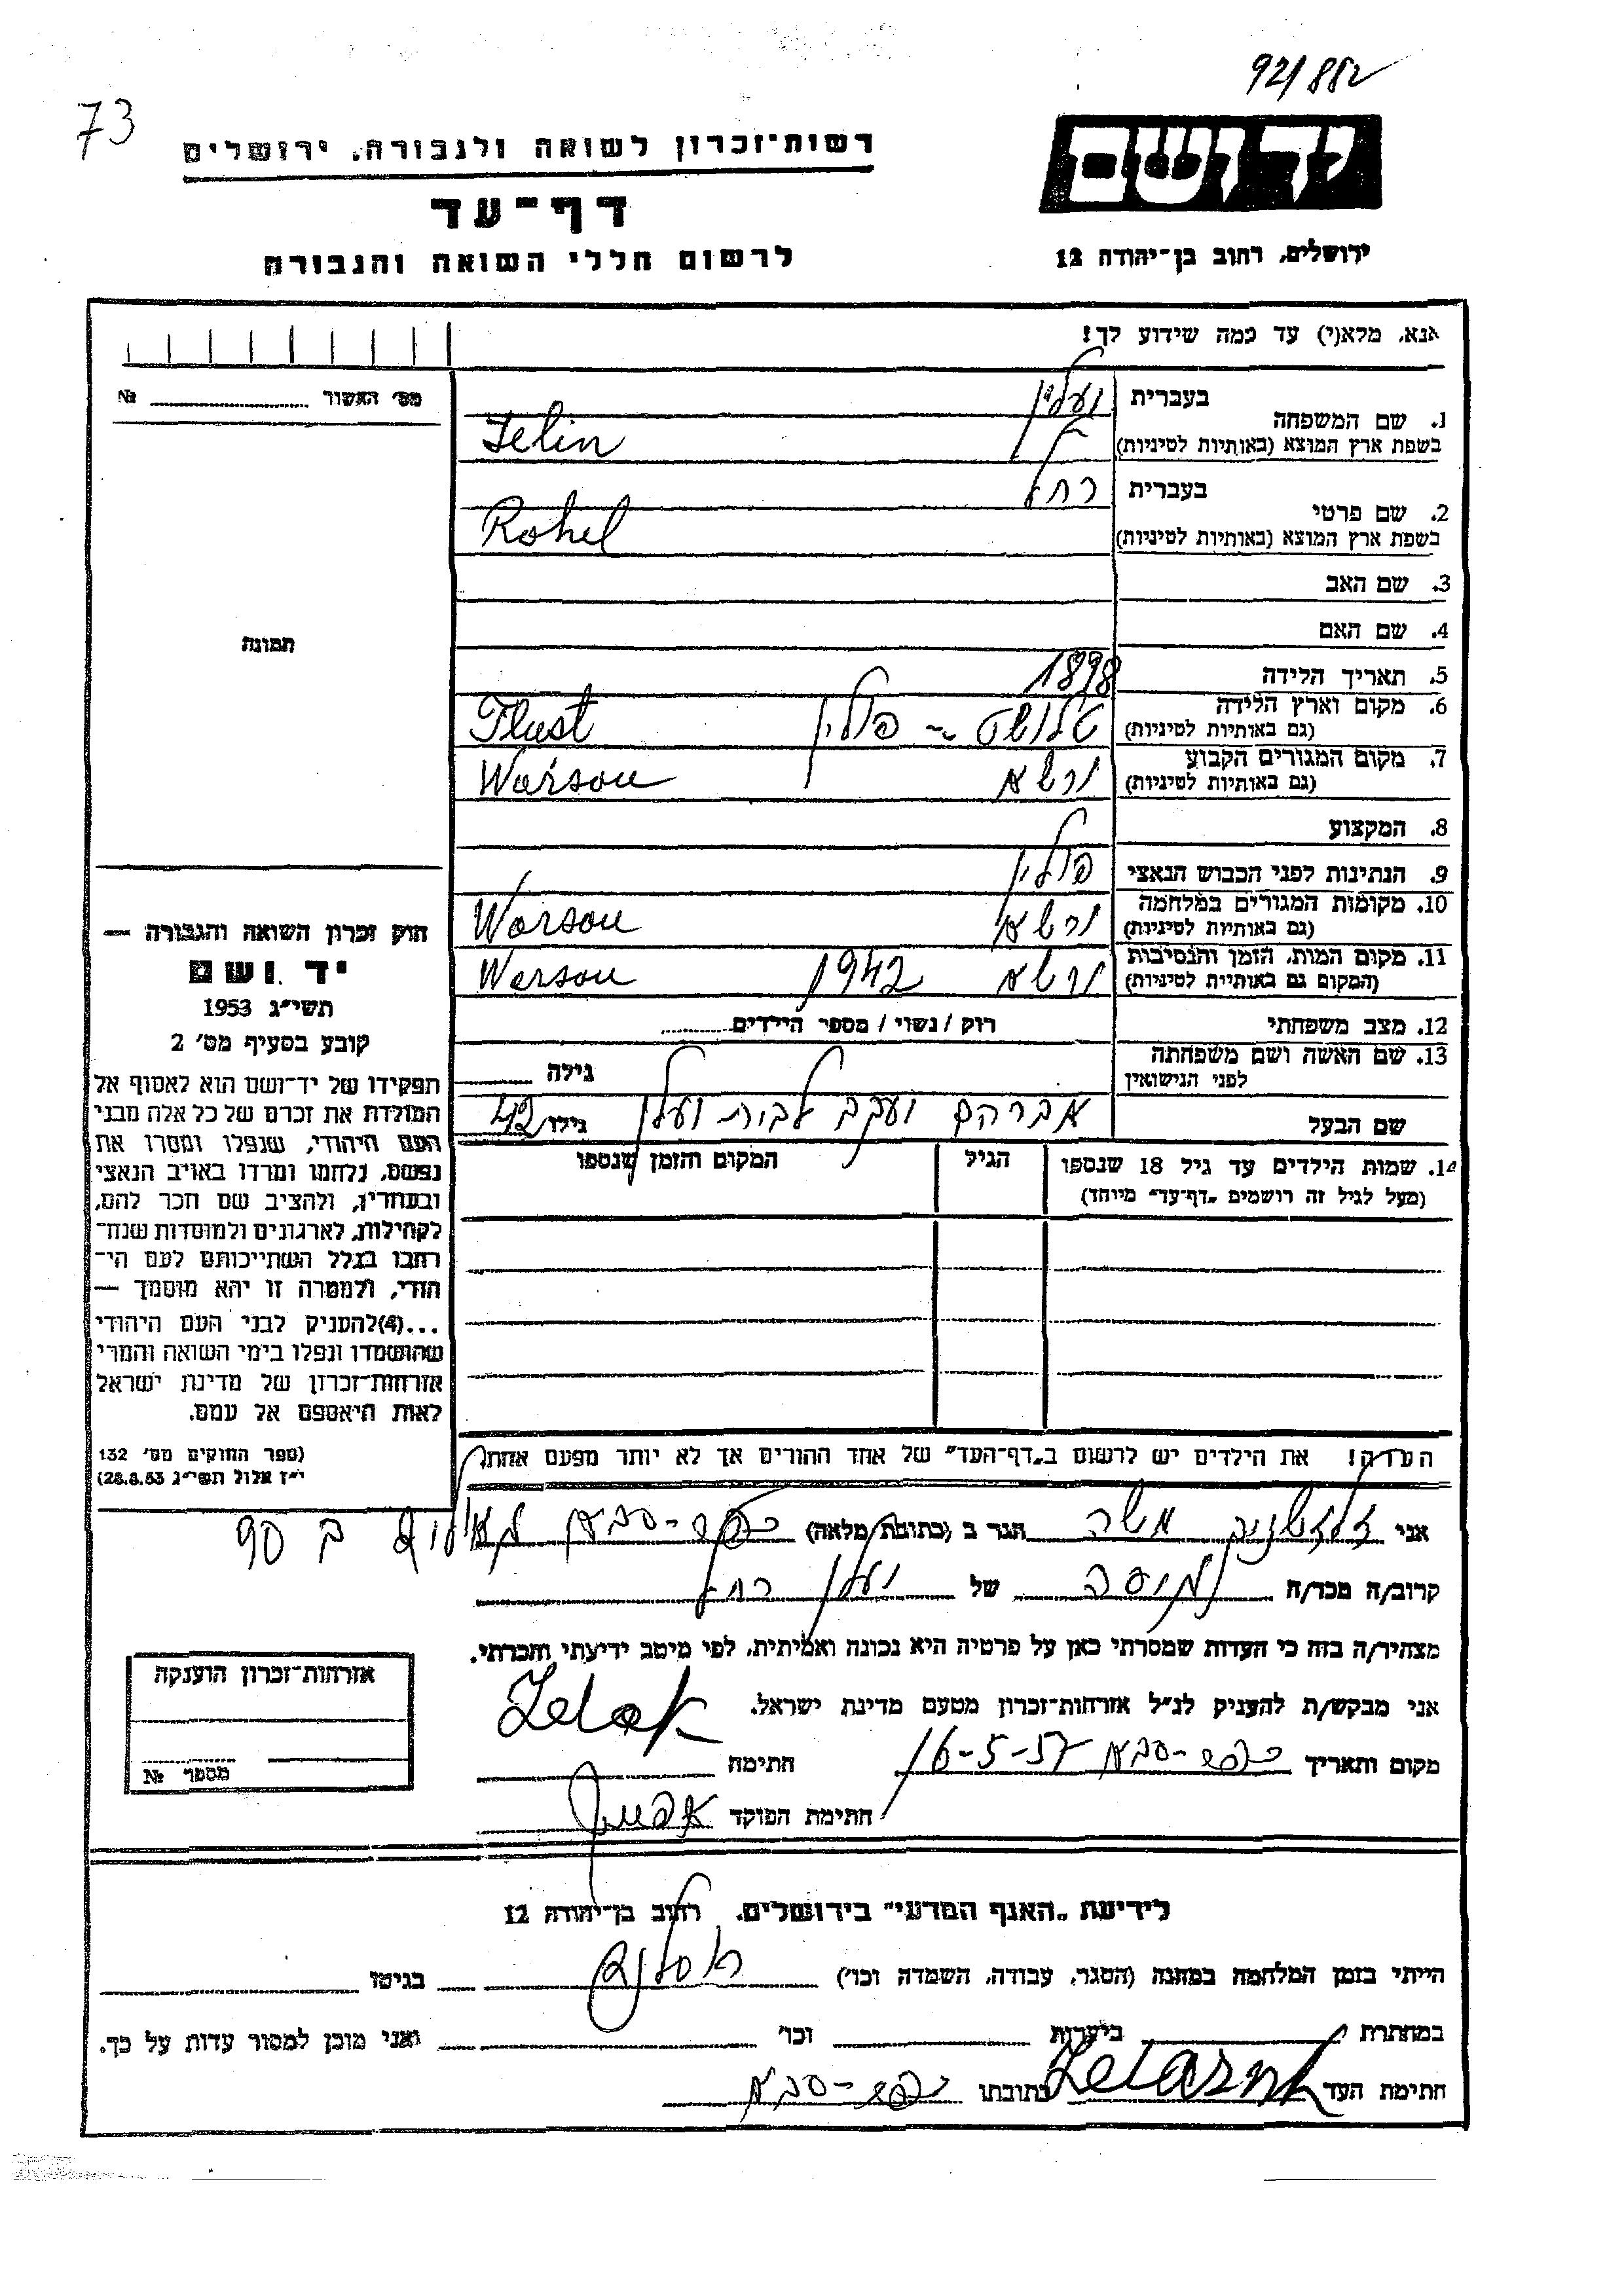 92/882
73
יד ושם
רשות-זכרון לשואה ולגבורה, ירושלים
דף-עד
לרשום חללי השואה והגבורה
ירושלים, רחוב בן-יהודה 12
אנא, מלא(י) עד כמה שידוע לך!
מס' האשור № 
1. שם המשפחה בעברית יעלין
בשפת ארץ המוצא (באותיות לטיניות) Jelin
2. שם פרטי בעברית רחל
בשפת ארץ המוצא (באותיות לטיניות) Rohel
3. שם האב
4. שם האם
תמונה
5. תאריך הלידה 1898
6. מקום וארץ הלידה (גם באותיות לטיניות) טלושט - פולין Tlust
7. מקום המגורים הקבוע (גם באותיות לטיניות) ורשא Warsou
8. המקצוע
9. הנתינות לפני הכבוש הנאצי פולין
10. מקומות המגורים במלחמה (גם באותיות לטיניות) ורשא Warsou
11. מקום המות, הזמן והנסיבות (המקום גם באותיות לטיניות) ורשא 1942 Warsou
12. מצב משפחתי רוק / נשוי / מספר הילדים
13. שם האשה ושם משפחתה לפני הנישואין גילה
שם הבעל אברהם יעקב לבית יעלן גילו 42
14. שמות הילדים עד גיל 18 שנספו הגיל המקום והזמן שנספו
(מעל לגיל זה רושמים "דף-עד" מיוחד)
חוק זכרון השואה והגבורה —
יד ושם
תשי"ג 1953
קובע בסעיף מס' 2
תפקידו של יד-ושם הוא לאסוף אל
המולדת את זכרם של כל אלה מבני
העם היהודי, שנפלו ומסרו את
נפשם, נלחמו ומרדו באויב הנאצי
ובעוזריו, ולהציב שם וזכר להם,
לקהילות, לארגונים ולמוסדות שנח-
רבו בגלל השתייכותם לעם הי-
הודי, ולמטרה זו יהא מוסמך —
...(4) להעניק לבני העם היהודי
שהושמדו ונפלו בימי השואה והמרי
אזרחות-זכרון של מדינת ישראל
לאות היאספם אל עמם.
(ספר החוקים מס' 132
י"ז אלול תשי"ג 28.8.53)
הערה! את הילדים יש לרשום ב"דף-העד" של אחד ההורים אך לא יותר מפעם אחת.
אני משה הגר ב (כתובת מלאה) כפר-סבא ב 90
קרוב/ה מכר/ה של יעלן רחל
מצהיר/ה בזה כי העדות שמסרתי כאן על פרטיה היא נכונה ואמיתית, לפי מיטב ידיעתי והכרתי.
אני מבקש/ת להעניק לנ"ל אזרחות-זכרון מטעם מדינת ישראל.
מקום ותאריך כפר-סבא 16-5-57 חתימה
חתימת הפוקד
אזרחות-זכרון הוענקה
מספר №
לידיעת "האגף המדעי" בירושלים, רחוב בן-יהודה 12
הייתי בזמן המלחמה במחנה (הסגר, עבודה, השמדה וכו') בגיטו
במחתרת ביערות וכו' ואני מוכן למסור עדות על כך.
חתימת העד כתובתו כפר-סבא